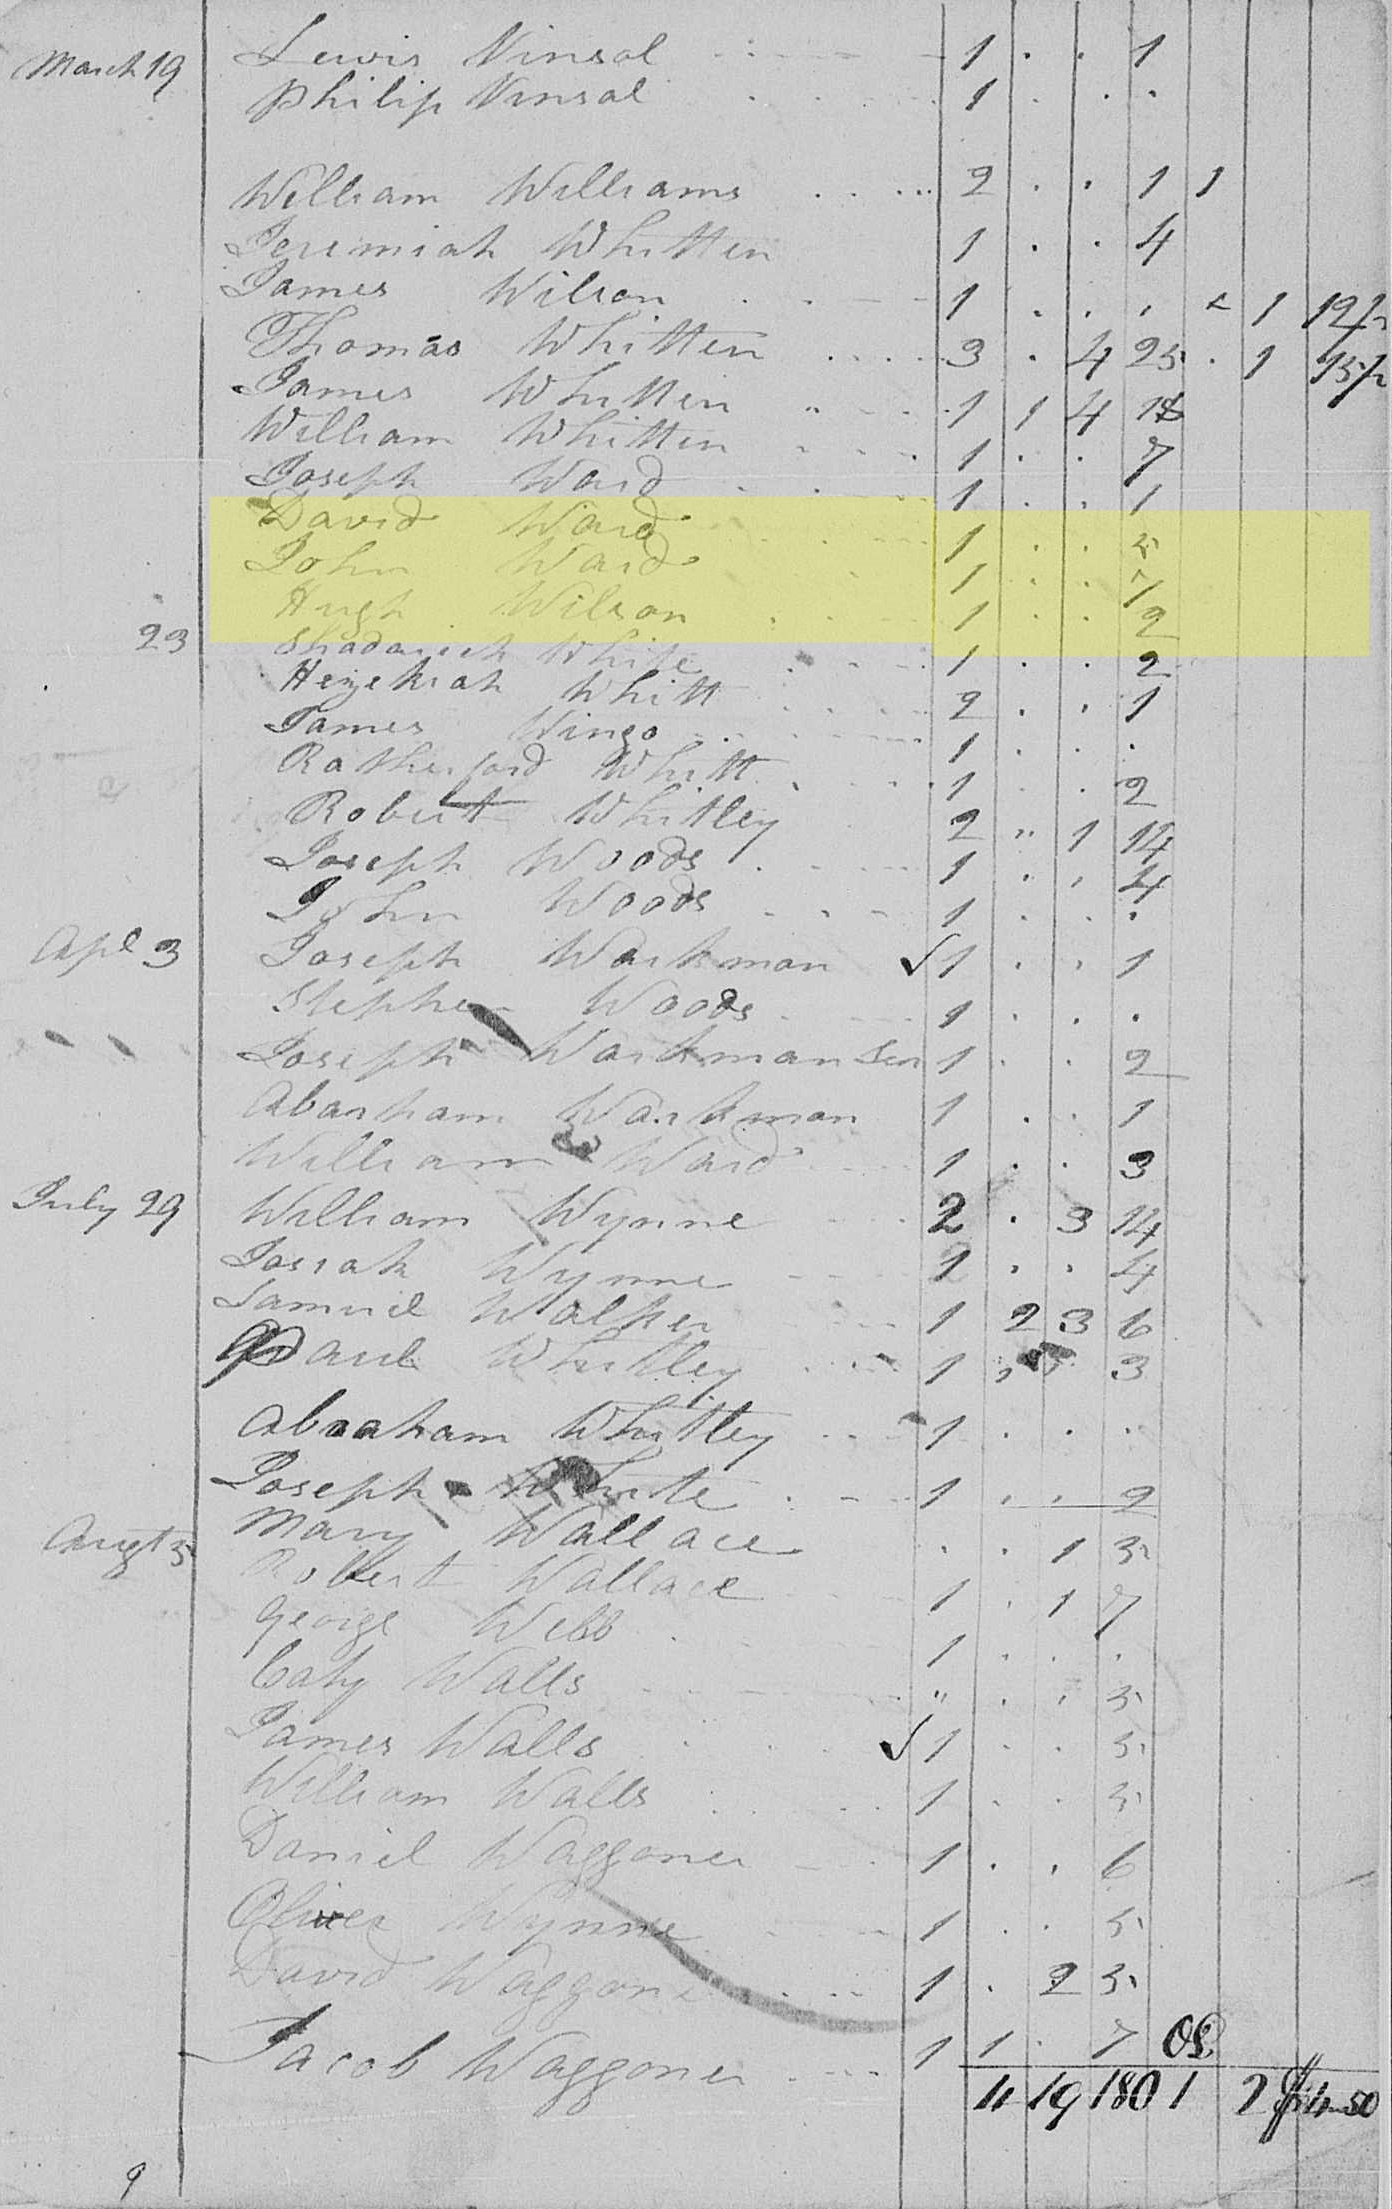 March 19 Lewis Vinsal 1 . . 1
Philip Vinsal 1 . . .
William Williams 2 . . 1 1
Jeremiah Whitten 1 . . 4
James Wilson 1 . . . 1 12½
Thomas Whitten 3 . 4 25 . 1 15½
James Whitten 1 1 4
William Whitten 1 . . 7
Joseph Ward 1 . . 1
David Ward 1 . . 5
John Ward 1 . . 7
Hugh Wilson 1 . . 2
23 Shadarick White 1 . . 2
Hezekiah Whitt 2 . . 1
James Wingo 1 . . .
Ratherford Whitt 1 . . 2
Robert Whitley 2 " 1 14
Joseph Woods 1 . . 4
John Woods 1 . . .
Apl 3 Joseph Workman √1 . . 1
Stephen Woods 1 . . .
Joseph Workman Sen 1 . . 2
Abarham Workman 1 . . 1
William Ward 1 . . 3
July 29 William Wynne 2 . 3 14
Josiah Wynne 1 . . 4
Samuel Walker 1 2 3 6
Paul Whitley 1 . . 3
Abraham Whitley 1 . . .
Joseph White 1 . . 2
Augt 5 Mary Wallace . . 1 5
Robert Wallace 1 . 1 7
George Webb 1 . . .
Caty Walls " . . 5
James Walls √1 . . 5
William Walls 1 . . 5
Daniel Waggoner 1 . . 6
Oliver Wynne 1 . . 5
David Waggoner 1 . 2 5
Jacob Waggoner 1 1 . 7
4 19 180 1 2
9